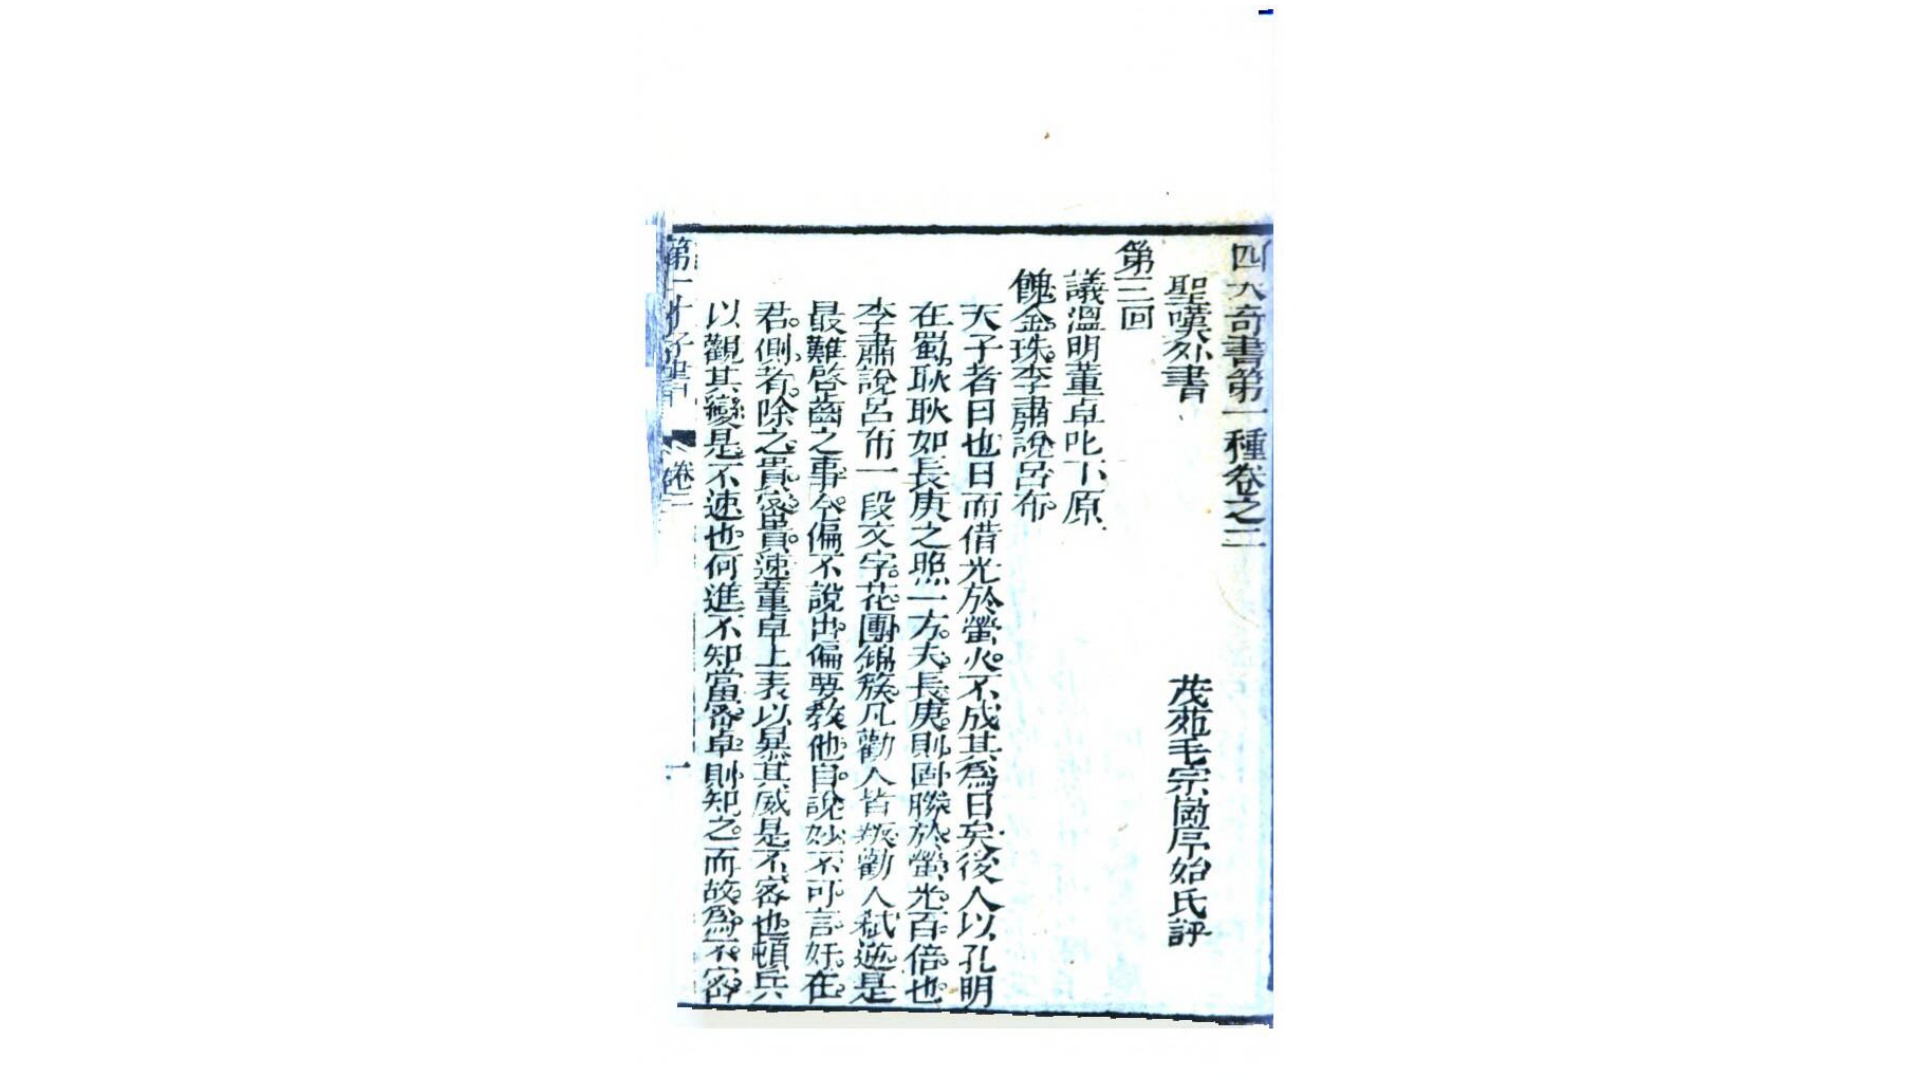 四大奇書第一種卷之二
聖嘆外書
茂苑毛宗崗序始氏評
第三回
議溫明董卓叱丁原
餽金珠李肅說呂布
天子者日也日而借光於螢火不成其為日矣後人以孔明
在蜀耿耿如長庚之照一方夫長庚則固勝於螢光百倍也
李肅說呂布一段文字花團錦簇凡勸人皆叛勸人弒逆是
最難啓齒之事今偏不說出偏要教他自說妙不可言好在
君側者除之貴密貴速董卓上表以暴其威是不密也頓兵
以觀其變是不速也何進不知當密卓則知之而故為不密
第一才子書
卷二
一